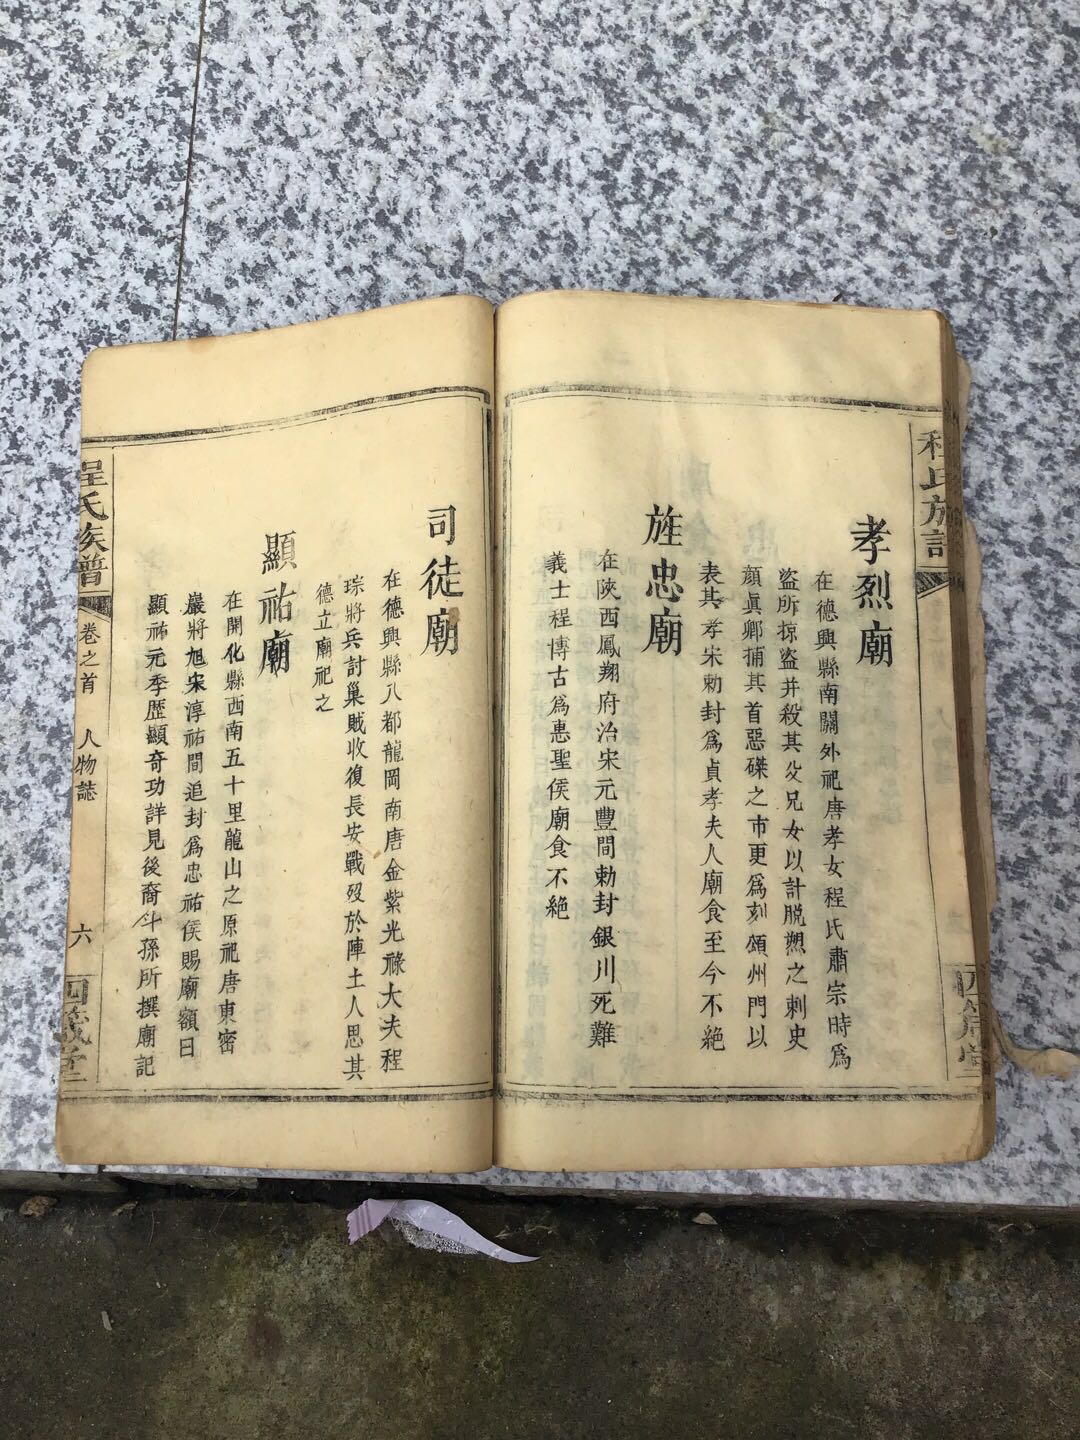 程氏族譜
孝烈廟
在德興縣南關外祀唐孝女程氏肅宗時爲
盜所掠盜并殺其父兄女以計脫愬之刺史
顏眞卿捕其首惡磔之市更爲刻頌州門以
表其孝宋勅封爲貞孝夫人廟食至今不絶
旌忠廟
在陝西鳳翔府治宋元豐間勅封銀川死難
義士程博古爲惠聖侯廟食不絶
司徒廟
在德興縣八都龍岡南唐金紫光祿大夫程
琮將兵討巢賊收復長安戰歿於陣土人思其
德立廟祀之
顯祐廟
在開化縣西南五十里龍山之原祀唐東密
巖將旭宋淳祐間追封爲忠祐侯賜廟額曰
顯祐元季歷顯奇功詳見後裔斗孫所撰廟記
程氏族譜
卷之首 人物誌
六
四箴堂